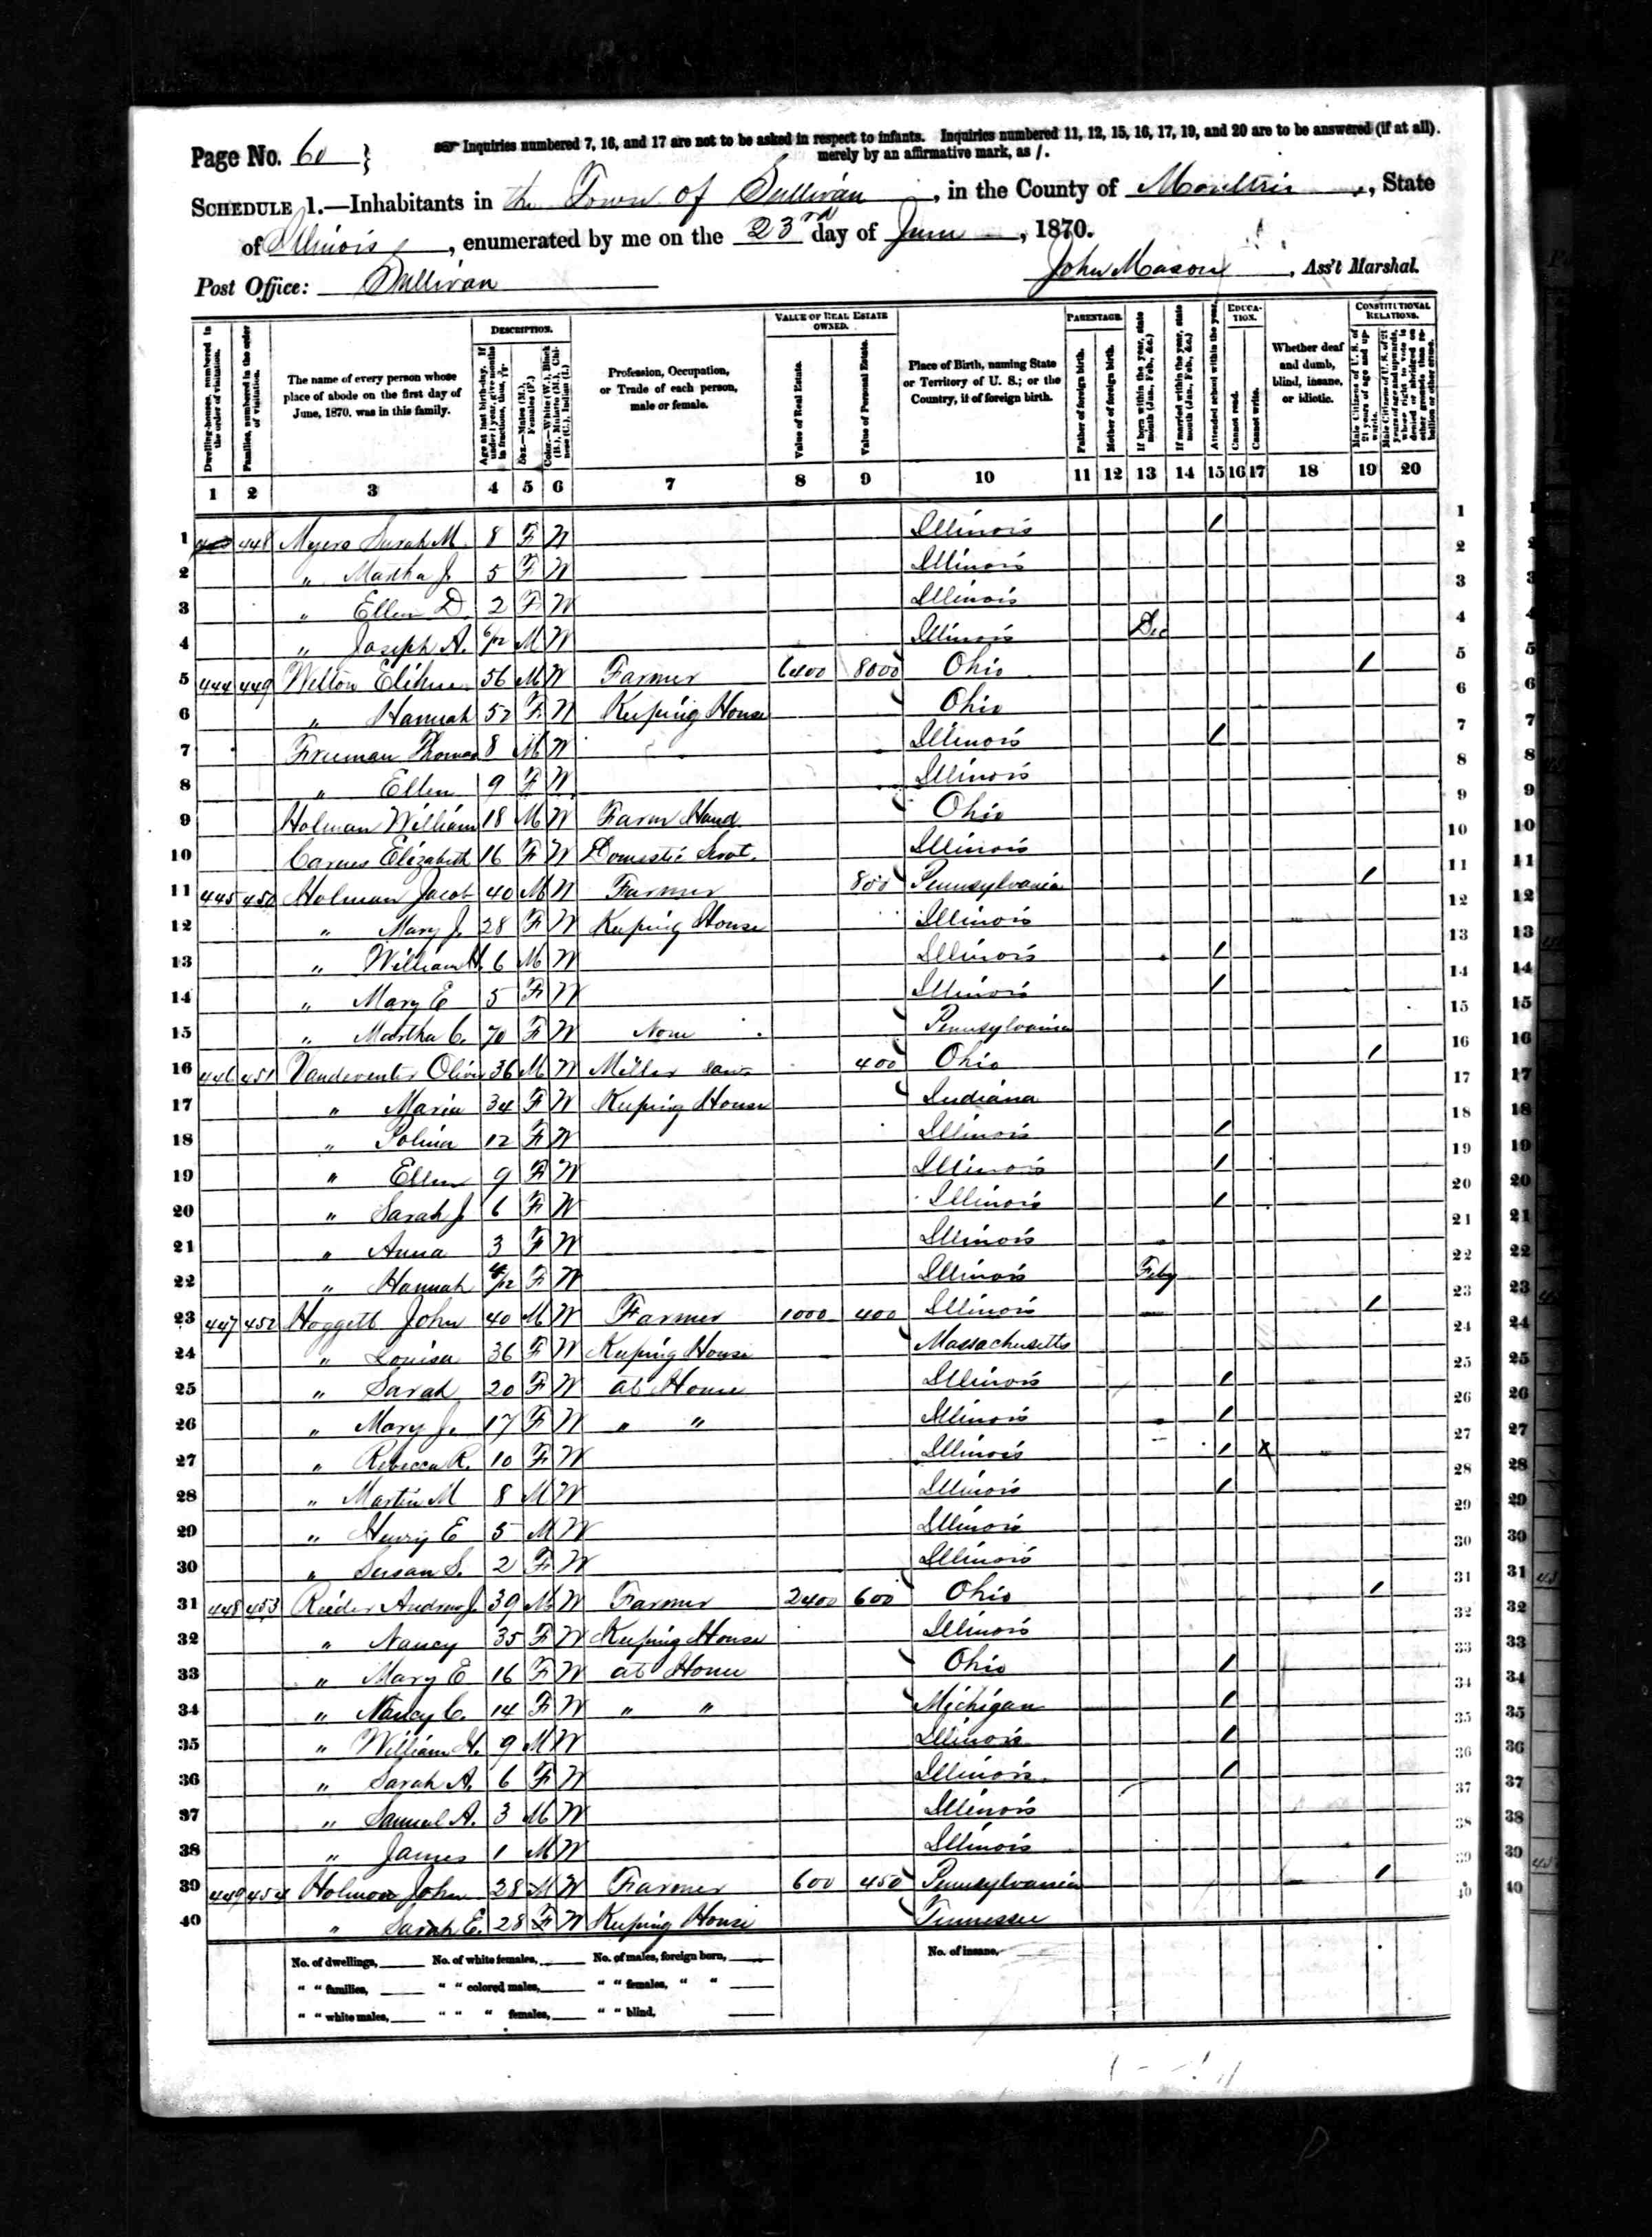 Page No. 60 }
Inquiries numbered 7, 16, and 17 are not to be asked in respect to infants. Inquiries numbered 11, 12, 15, 16, 17, 19, and 20 are to be answered (if at all)
merely by an affirmative mark, as /.
SCHEDULE 1.—Inhabitants in the Town of Sullivan, in the County of Moultrie, State
of Illinois, enumerated by me on the 23rd day of June, 1870.
Post Office: Sullivan
John Mason, Ass't Marshal.
Dwelling-houses, numbered in the order of visitation.
Families, numbered in the order of visitation.
The name of every person whose place of abode on the first day of June, 1870, was in this family.
DESCRIPTION.
Age at last birth-day. If under 1 year, give months in fractions, thus, 3/12
Sex.—Males (M.), Females (F.)
Color.—White (W.), Black (B.), Mulatto (M.), Chinese (C.), Indian (I.)
Profession, Occupation, or Trade of each person, male or female.
VALUE OF REAL ESTATE OWNED.
Value of Real Estate.
Value of Personal Estate.
Place of Birth, naming State or Territory of U. S.; or the Country, if of foreign birth.
PARENTAGE.
Father of foreign birth.
Mother of foreign birth.
If born within the year, state month (Jan., Feb., &c.)
If married within the year, state month (Jan., Feb., &c.)
Attended school within the year.
EDUCATION.
Cannot read.
Cannot write.
Whether deaf and dumb, blind, insane, or idiotic.
CONSTITUTIONAL RELATIONS.
Male Citizens of U. S. of 21 years of age and upwards.
Male Citizens of U. S. of 21 years of age and upwards, whose right to vote is denied or abridged on other grounds than rebellion or other crime.
1 2 3 4 5 6 7 8 9 10 11 12 13 14 15 16 17 18 19 20
1 448 Myers Sarah M. 8 F W Illinois / 1
2 " Martha J. 5 F W Illinois 2
3 " Ellen D. 2 F W Illinois 3
4 " Joseph A. 6/12 M W Illinois Dec 4
5 444 449 Welton Elihu 56 M W Farmer 6400 8000 Ohio / 5
6 " Hannah 52 F W Keeping House Ohio 6
7 Freeman Thomas 8 M W Illinois / 7
8 " Ellen 9 F W Illinois 8
9 Holman William 18 M W Farm Hand Ohio 9
10 Carnes Elizabeth 16 F W Domestic Servt. Illinois 10
11 445 450 Holman Jacob 40 M W Farmer 800 Pennsylvania / 11
12 " Mary J. 28 F W Keeping House Illinois 12
13 " William H. 6 M W Illinois / 13
14 " Mary E 5 F W Illinois / 14
15 " Martha C. 70 F W None Pennsylvania 15
16 446 451 Vandeventer Oliver 36 M W Miller Saw 400 Ohio / 16
17 " Maria 34 F W Keeping House Indiana 17
18 " Polina 12 F W Illinois / 18
19 " Ellen 9 F W Illinois / 19
20 " Sarah J. 6 F W Illinois / 20
21 " Anna 3 F W Illinois 21
22 " Hannah 4/12 F W Illinois Feby 22
23 447 452 Hoggett John 40 M W Farmer 1000 400 Illinois / 23
24 " Louisa 36 F W Keeping House Massachusetts 24
25 " Sarah 20 F W at Home Illinois / 25
26 " Mary J. 17 F W " " Illinois / 26
27 " Rebecca R. 10 F W Illinois / X 27
28 " Martin M 8 M W Illinois / 28
29 " Henry E 5 M W Illinois 29
30 " Susan S. 2 F W Illinois 30
31 448 453 Reeder Andrew J. 39 M W Farmer 2400 600 Ohio / 31
32 " Nancy 35 F W Keeping House Illinois 32
33 " Mary E 16 F W at Home Ohio / 33
34 " Nancy C. 14 F W " " Michigan / 34
35 " William H. 9 M W Illinois / 35
36 " Sarah A. 6 F W Illinois / 36
37 " Samuel A. 3 M W Illinois 37
38 " James 1 M W Illinois 38
39 449 454 Holman John 28 M W Farmer 600 450 Pennsylvania / 39
40 " Sarah E. 28 F W Keeping House Tennessee 40
No. of dwellings, No. of white females, No. of males, foreign born, No. of insane,
" " families, " " colored males, " " females, " "
" " white males, " " " females, " " blind,